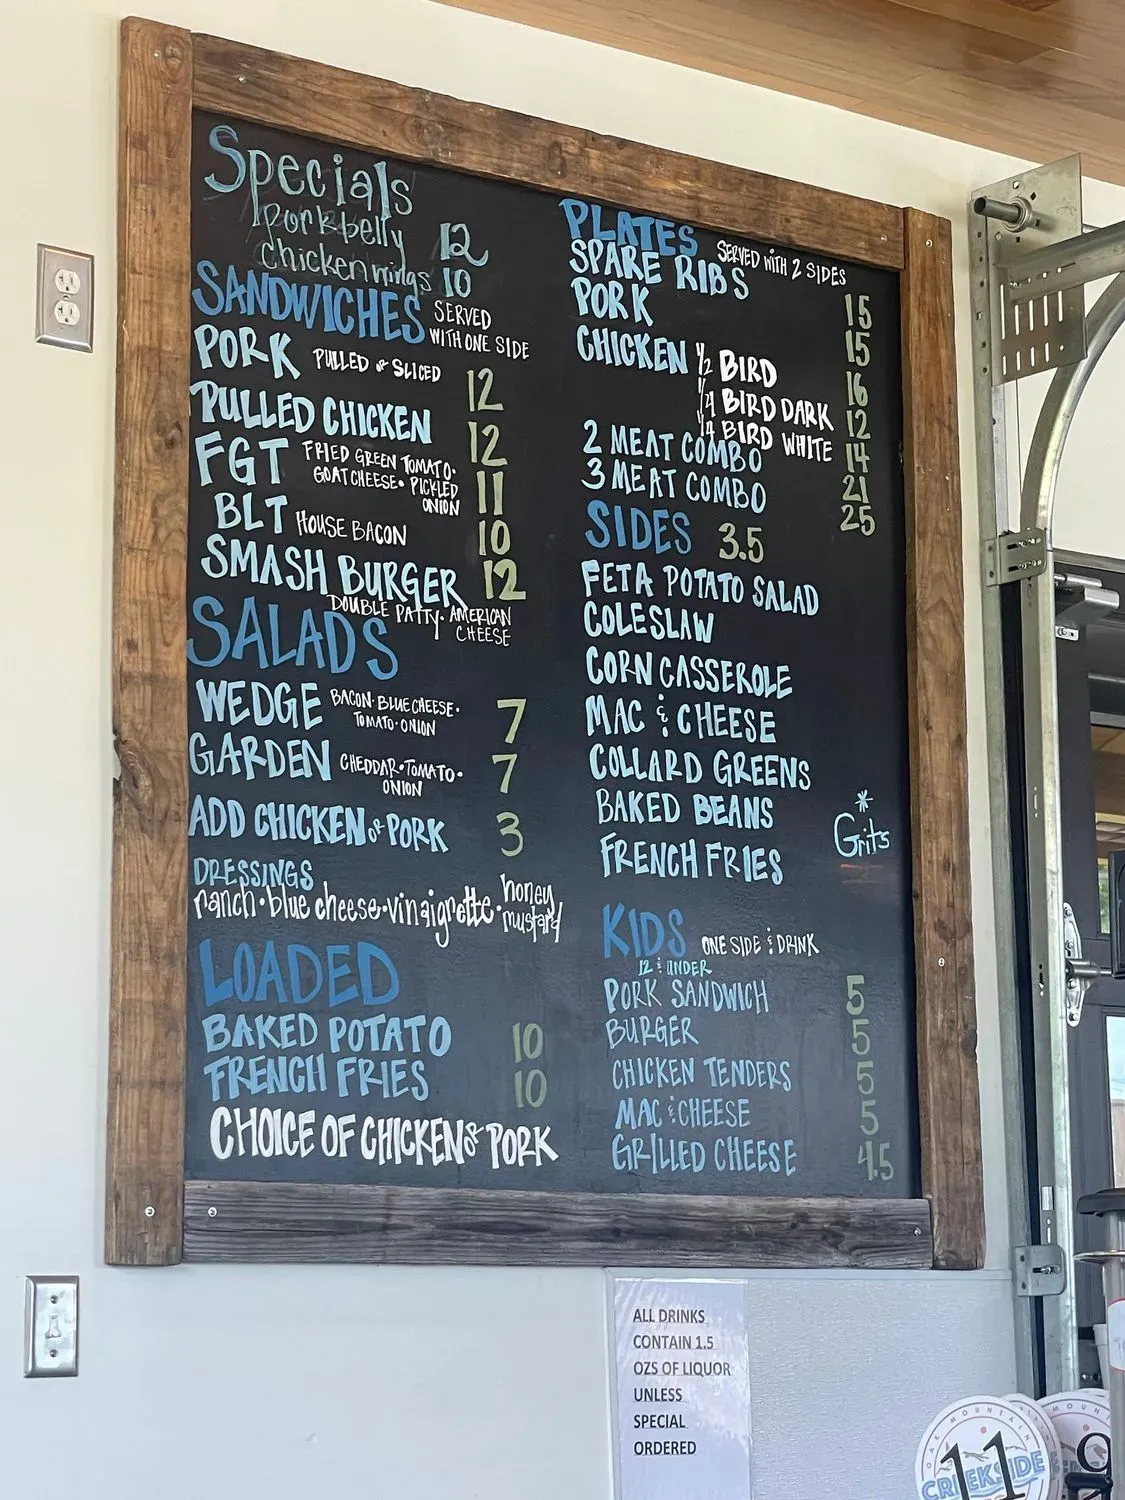 Specials
porkbelly 12
chicken wings 10
SANDWICHES SERVED
WITH ONE SIDE
PORK PULLED or SLICED 12
PULLED CHICKEN 12
FGT FRIED GREEN TOMATO·
GOAT CHEESE· PICKLED
ONION 11
BLT HOUSE BACON 10
SMASH BURGER 12
DOUBLE PATTY· AMERICAN
CHEESE
SALADS
WEDGE BACON·BLUE CHEESE·
TOMATO·ONION 7
GARDEN CHEDDAR·TOMATO·
ONION 7
ADD CHICKEN or PORK 3
DRESSINGS
ranch·blue cheese·vinaigrette·honey
mustard
LOADED
BAKED POTATO 10
FRENCH FRIES 10
CHOICE OF CHICKEN or PORK
PLATES SERVED WITH 2 SIDES
SPARE RIBS 15
PORK 15
CHICKEN 1/2 BIRD 16
1/4 BIRD DARK 12
1/4 BIRD WHITE 14
2 MEAT COMBO 21
3 MEAT COMBO 25
SIDES 3.5
FETA POTATO SALAD
COLESLAW
CORN CASSEROLE
MAC & CHEESE
COLLARD GREENS
BAKED BEANS
FRENCH FRIES
*
Grits
KIDS ONE SIDE & DRINK
12 & UNDER
PORK SANDWICH 5
BURGER 5
CHICKEN TENDERS 5
MAC & CHEESE 5
GRILLED CHEESE 4.5
ALL DRINKS
CONTAIN 1.5
OZS OF LIQUOR
UNLESS
SPECIAL
ORDERED
OAK MOUNTAIN
CREEKSIDE
11
9